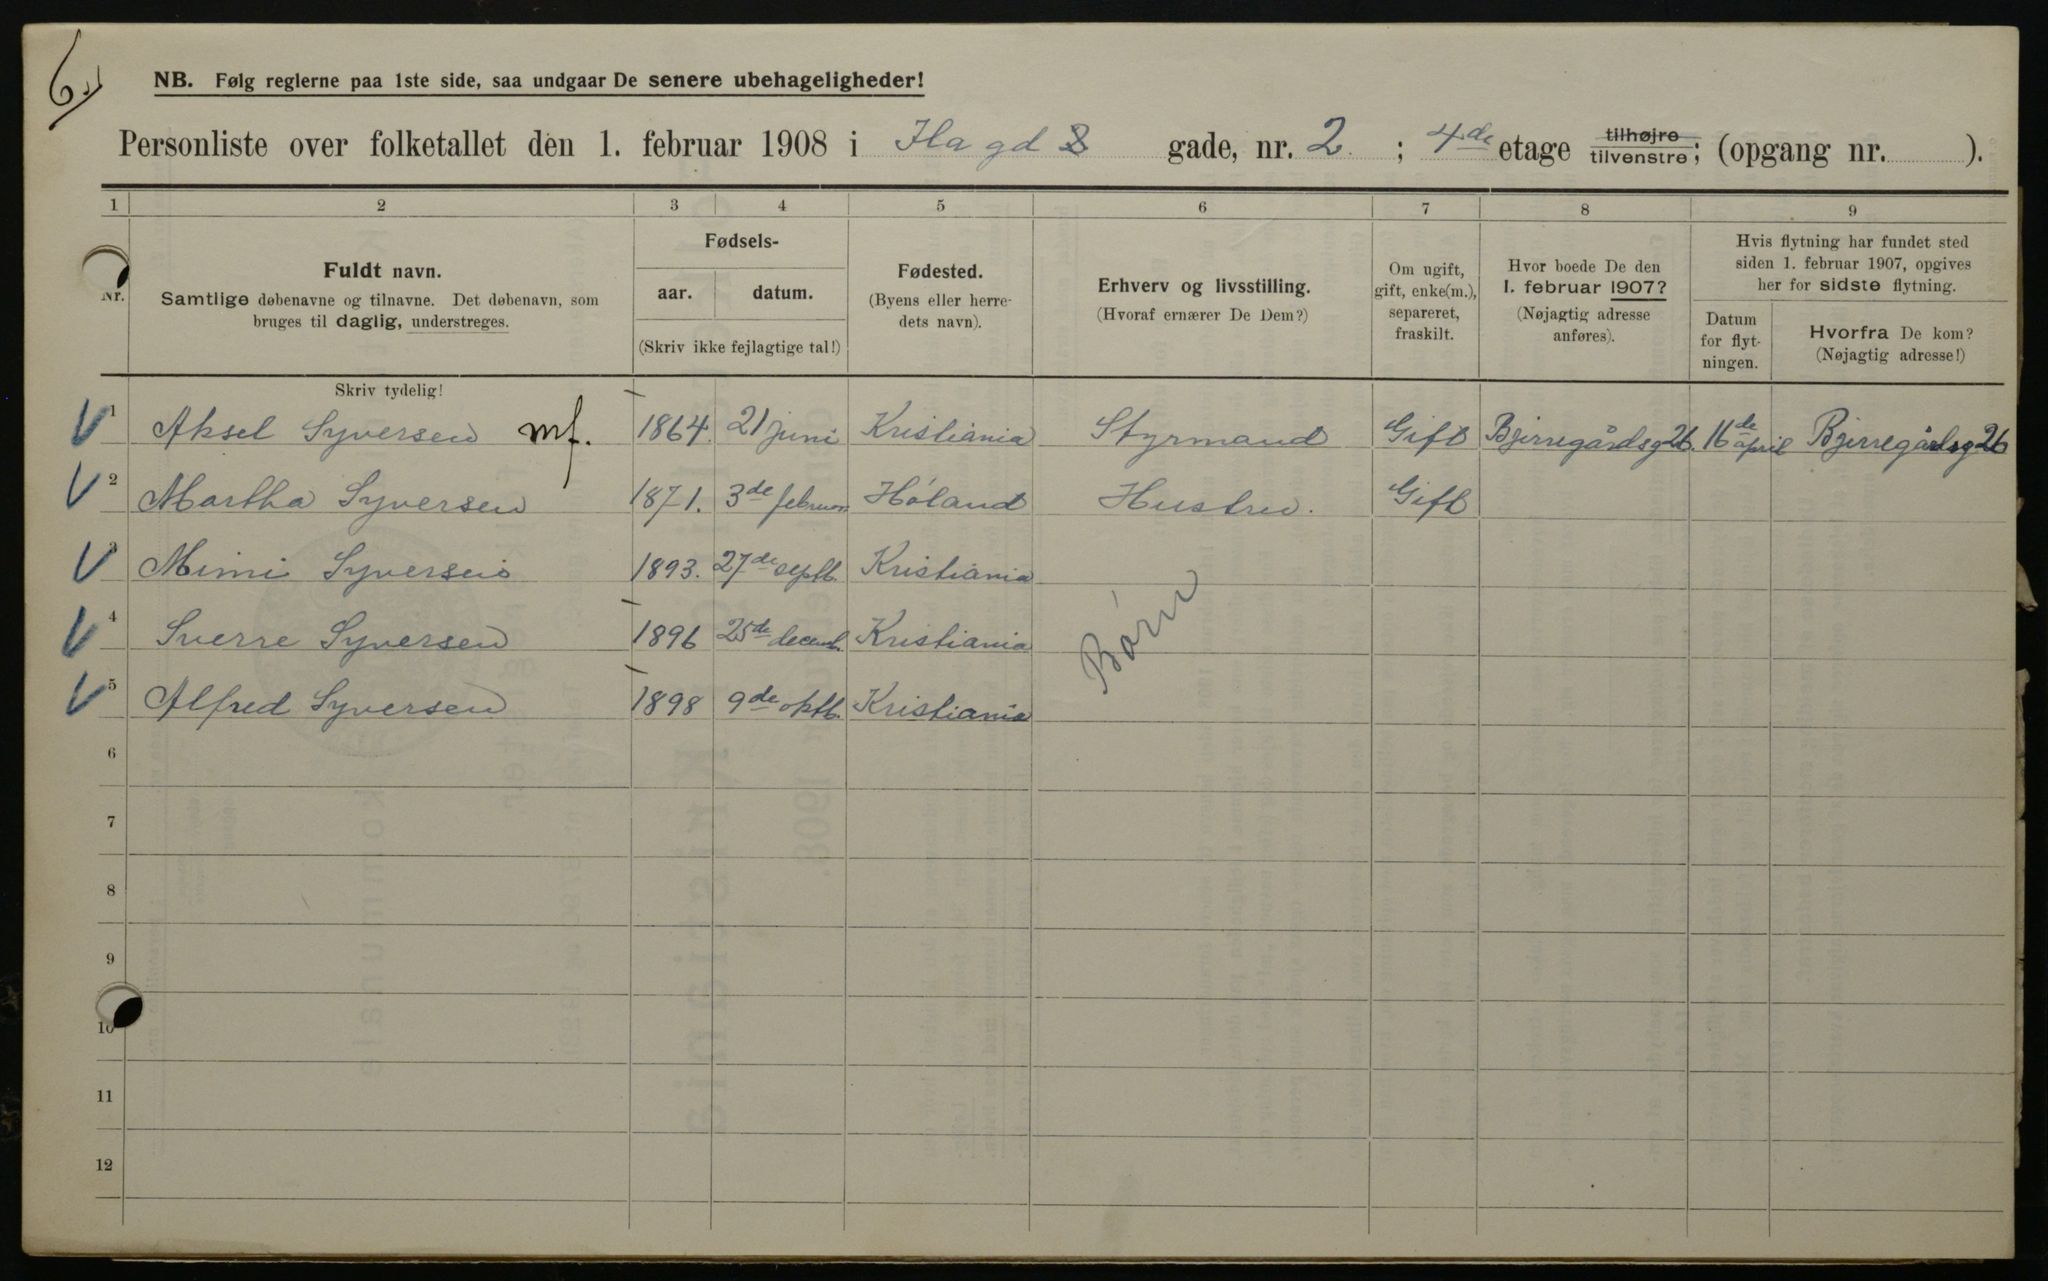 6
NB. Følg reglerne paa 1ste side, saa undgaar De senere ubehageligheder!
Personliste over folketallet den 1. februar 1908 i Ila gd gade, nr. 2 ; 4de etage tilhøjre tilvenstre; (opgang nr. ).
1 2 3 4 5 6 7 8 9
Nr.
Fuldt navn.
Samtlige døbenavne og tilnavne. Det døbenavn, som
bruges til daglig, understreges.
Skriv tydelig!
Fødsels-
aar. datum.
(Skriv ikke fejlagtige tal!)
Fødested.
(Byens eller herre-
dets navn).
Erhverv og livsstilling.
(Hvoraf ernærer De Dem?)
Om ugift,
gift, enke(m.),
separeret,
fraskilt.
Hvor boede De den
1. februar 1907?
(Nøjagtig adresse
anføres).
Hvis flytning har fundet sted
siden 1. februar 1907, opgives
her for sidste flytning.
Datum
for flyt-
ningen.
Hvorfra De kom?
(Nøjagtig adresse!)
1 Aksel Syversen mf. 1864. 21 juni Kristiania Styrmand Gift Bjerregårdsg 26. 16de april Bjerregårdsg 26
2 Martha Syversen 1871. 3de februar Høland Hustru. Gift
3 Mimi Syversen 1893. 27de septb. Kristiania
4 Sverre Syversen 1896 25de decemb. Kristiania
Børn
5 Alfred Syversen 1898 9de oktb. Kristiania
6
7
8
9
10
11
12